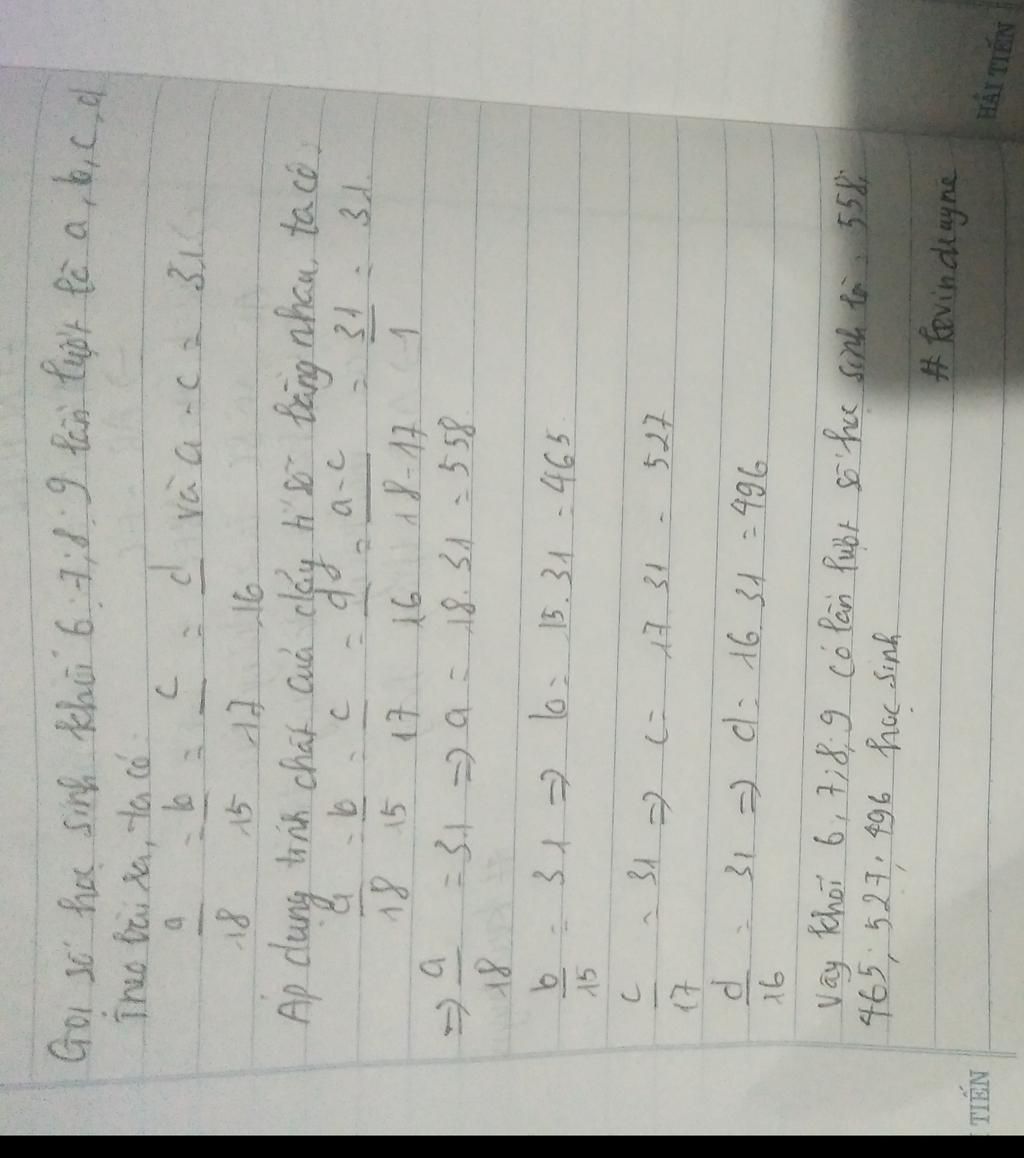 Gọi số học sinh khối 6; 7; 8; 9 lần lượt là a, b, c, d
Theo bài ra, ta có:
a/18 = b/15 = c/17 = d/16 và a - c = 31
Áp dụng tính chất của dãy tỉ số bằng nhau, ta có:
a/18 = b/15 = c/17 = d/16 = a-c/18-17 = 31/1 = 31
=> a/18 = 31 => a = 18.31 = 558
b/15 = 31 => b = 15.31 = 465
c/17 = 31 => c = 17.31 = 527
d/16 = 31 => d = 16.31 = 496
Vậy khối 6, 7; 8; 9 có lần lượt số học sinh là: 558;
465; 527; 496 học sinh
TIẾN
HẢI TIẾN